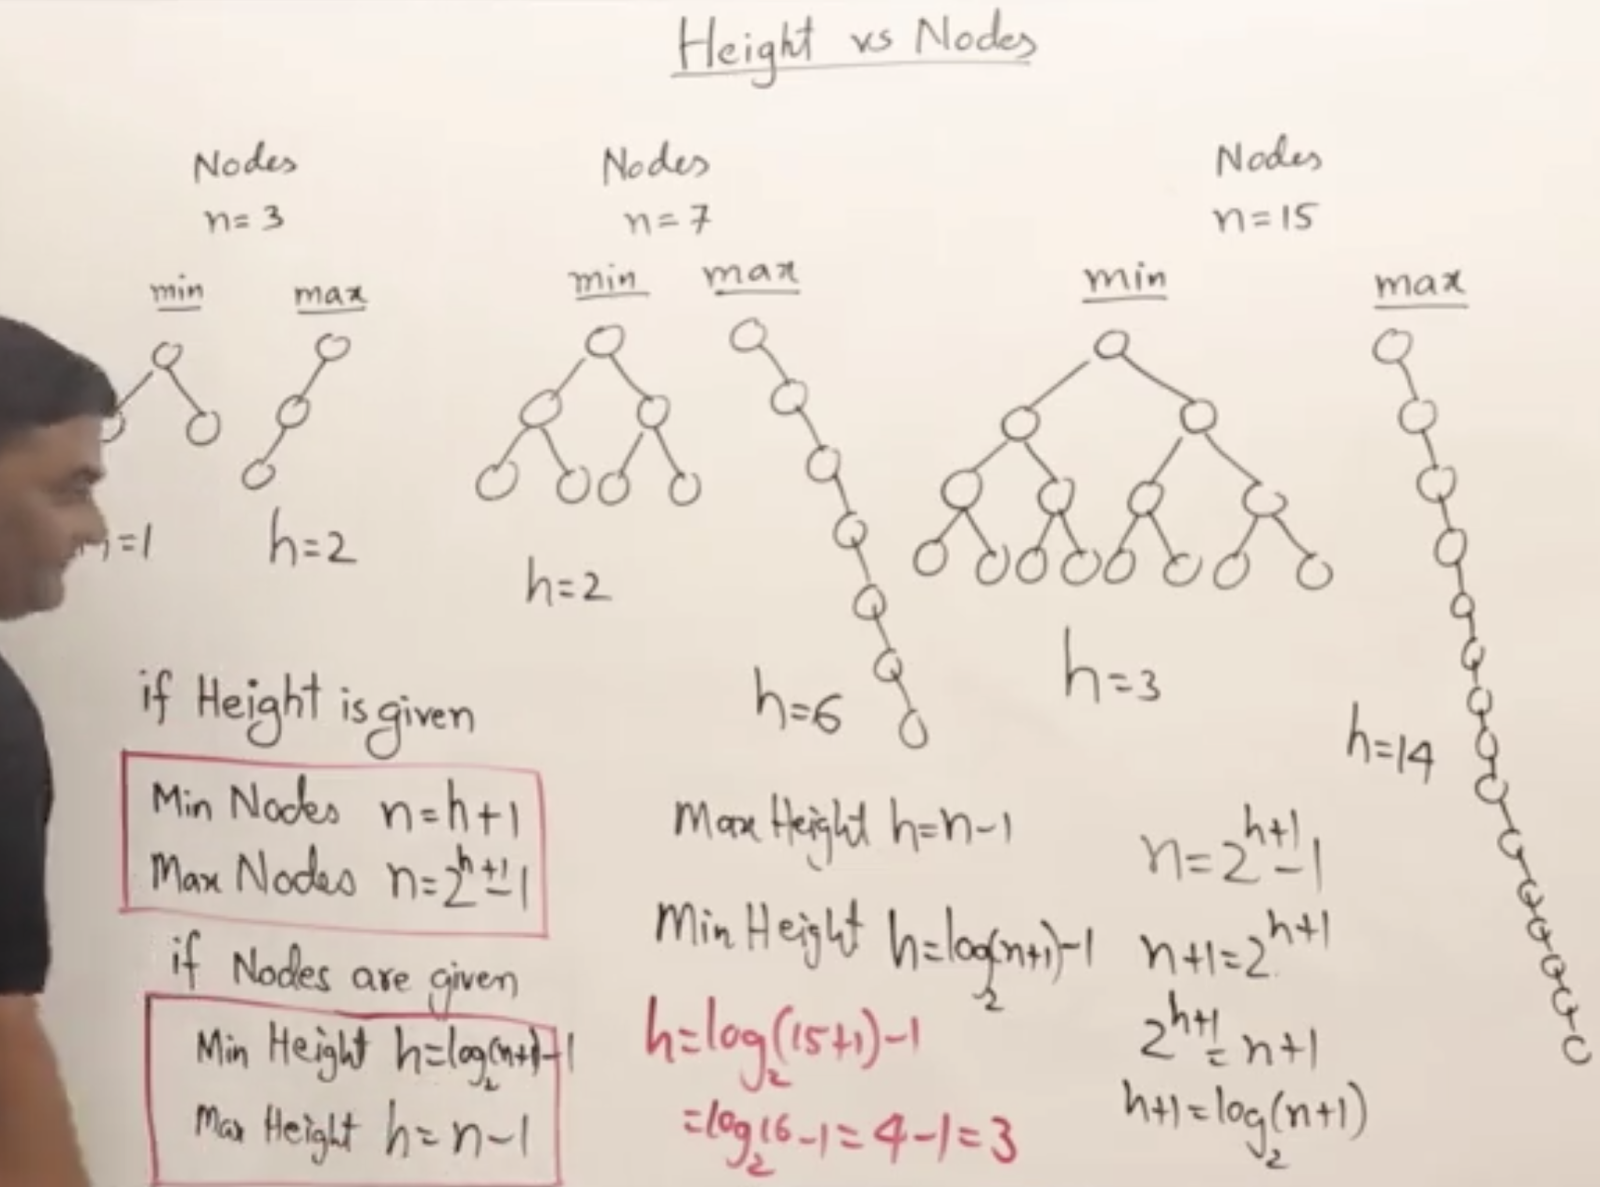 Height vs Nodes
Nodes
n=3
min
max
=1
h=2
Nodes
n=7
min
max
h=2
h=6
Nodes
n=15
min
max
h=3
h=14
if Height is given
Min Nodes n=h+1
Max Nodes n=2^{h+1}-1
if Nodes are given
Min Height h=log₂(n+1)-1
Max Height h=n-1
Max Height h=n-1
Min Height h=log₂(n+1)-1
h=log₂(15+1)-1
=log₂16-1=4-1=3
n=2^{h+1}-1
n+1=2^{h+1}
2^{h+1}=n+1
h+1=log₂(n+1)